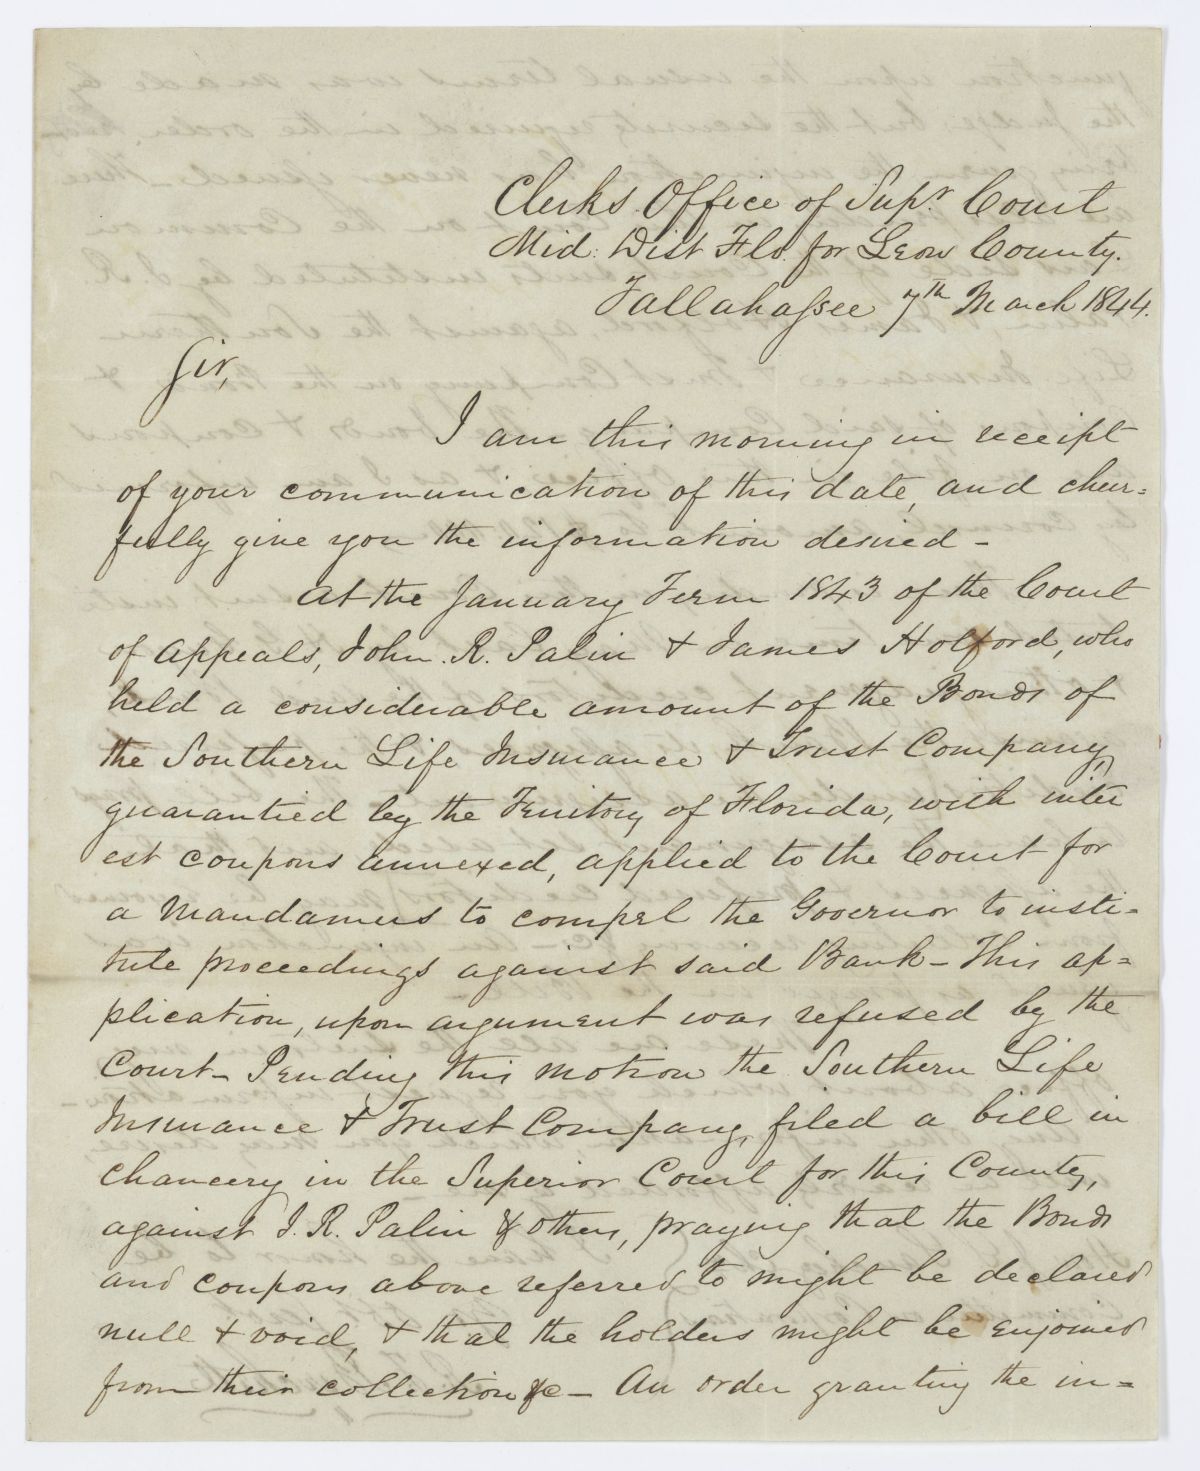 Clerks Office of Supr. Court
Mid: Dist Flo. for Leon County.
Tallahassee 7th March 1844.
Sir,
I am this morning in receipt
of your communication of this date, and cheer=
fully give you the information desired -
At the January Term 1843 of the Court
of Appeals, John. R. Palin & James Holford, who
held a considerable amount of the Bonds of
the Southern Life Insurance & Trust Company,
guarantied by the Territory of Florida, with inter
est coupons annexed, applied to the Court for
a Mandamus to compel the Governor to insti=
tute proceedings against said Bank - This ap=
plication, upon argument was refused by the
Court - Pending this motion the Southern Life
Insurance & Trust Company, filed a bill in
chancery in the Superior Court for this County,
against J. R. Palin & others, praying that the Bonds
and coupons above referred to might be declared
null & void, & that the holders might be enjoined
from their collection &c - An order granting the in=